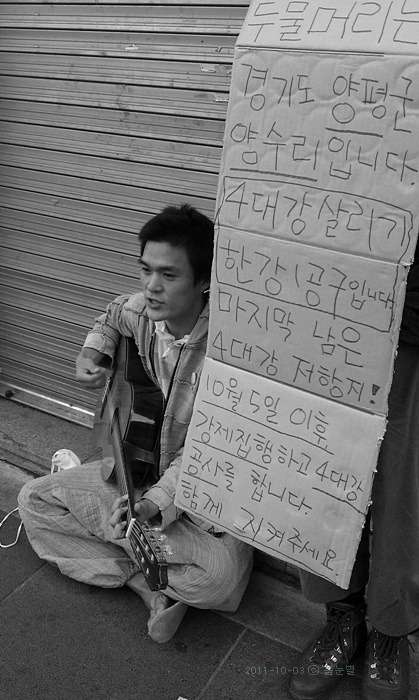 두물머리는
경기도 양평군
양수리 입니다.
4대강살리기
한강1공구입니다
마지막 남은
4대강 저항지!
10월 5일 이후
강제집행하고 4대강
공사를 합니다.
함께 지켜주세요
2011-10-03 ⓒ